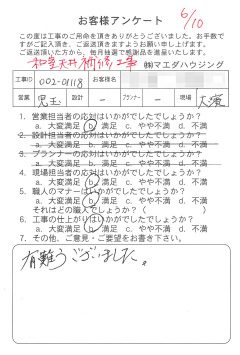 お客様アンケート
6/10
この度は工事のご用命を頂きありがとうございました。お手数で
すがご記入頂き、ご返送頂きますようお願い申し上げます。
ご返送頂いた方から、毎月抽選で感謝品を進呈いたします。
和室天井補修工事 ㈱マエダハウジング
工事ID 002-01118 お客様名
営業 児玉 設計 - プランナー - 現場 大濱
1. 営業担当者の応対はいかがでしたでしょうか?
a. 大変満足 b. 満足 c. やや不満 d. 不満
2. 設計担当者の応対はいかがでしたでしょうか?
a. 大変満足 b. 満足 c. やや不満 d. 不満
3. プランナーの応対はいかがでしたでしょうか?
a. 大変満足 b. 満足 c. やや不満 d. 不満
4. 現場担当者の応対はいかがでしたでしょうか?
a. 大変満足 b. 満足 c. やや不満 d. 不満
5. 職人のマナーはいかがでしたでしょうか?
a. 大変満足 b. 満足 c. やや不満 d. 不満
それはどの職人でしょうか?( )
6. 工事の仕上がりはいかがでしたでしょうか?
a. 大変満足 b. 満足 c. やや不満 d. 不満
7. その他、ご意見・ご要望をお書き下さい。
有難うございました。